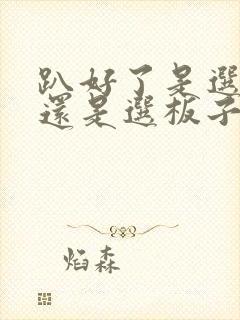 趴好了是選
還是選板子
焰森